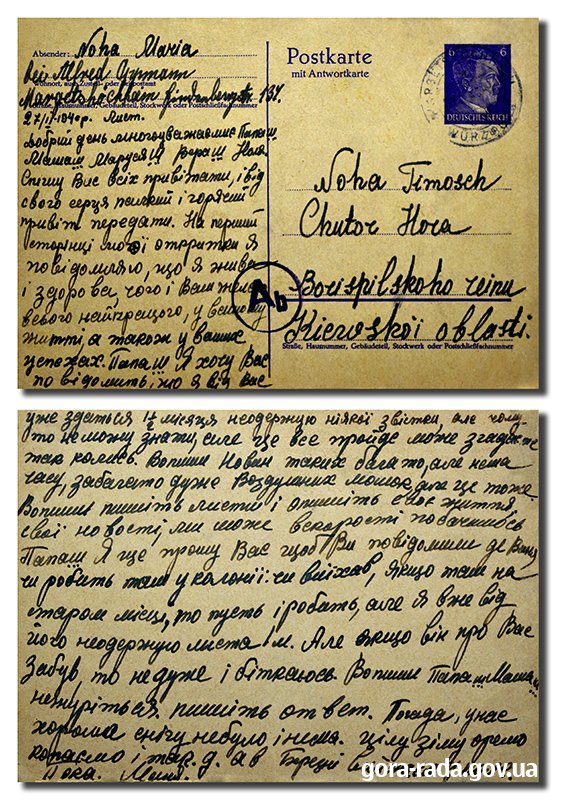 Absender: Noha Maria
bei Alfred Gutmann
Wohnort, auch Zustell- oder Leitpostamt
Margetshöchheim 137.
Straße, Hausnummer, Gebäudeteil, Stockwerk oder Postschließfachnummer
Лист.
Добрий день многоуважаємиє Папаш
Мамаш Маруся!!! Вєраш Ноля
Спішу Вас всіх привітати, і від
свого серця палкий і горячий
привіт передати. На першій
сторінці моєї откритки я
повідомляю, що я жива
і здорова, чого і Вам желаю
всього найкращого, у вашому
житті, а также у ваших
успехах. Папаш Я хочу Вас
повідомить, що я від вас
Postkarte
mit Antwortkarte
6 6
DEUTSCHES REICH
WÜRZB
Noha Timosch
Chutor Hora
Borispilskoho reinu
Kiewskoi oblasti.
Straße, Hausnummer, Gebäudeteil, Stockwerk oder Postschließfachnummer
Ab
уже здається 1½ місяця неодержую ніякої звістки, але чому-
то неможу знати, але це все пройде може згадаєте
так колись. Вопшим Новин таких багато, але нема
часу, забагато дуже Воздушних але це тоже.
Вопшим пишіть листи і опишіть своє життя,
свої новості, ми може вскорості побачимось
Папаш Я ще прошу Вас щоб Ви повідомили де
чи робить там у колонії: чи виїхав, якщо там на
старом місці, то пусть і робить, але я вже від
його неодержую листа м. Але якщо він про Вас
Забув, то недуже і Вопшим Папаш Мамаш
нежуріться. пишіть отвєт. Погода, у нас
хороша снігу небуло і нема. цілу зіму оремо
копаємо і так. д. а в
Пока.
gora-rada.gov.ua